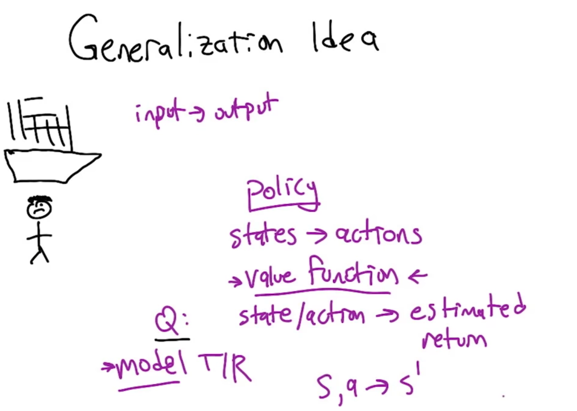 Generalization Idea
input → output
Policy
states → actions
→ value function ←
Q: state/action → estimated return
→ model T/R
s, a → s'